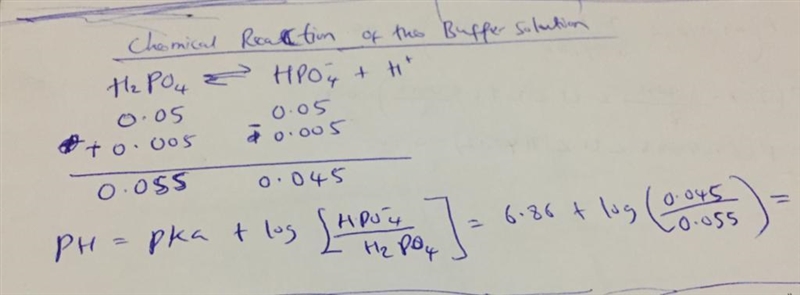 Chemical Reaction of the Buffer Solution
H₂PO₄ ⇌ HPO₄⁻ + H⁺
0.05 0.05
+ 0.005 - 0.005
0.055 0.045
PH = PKa + log [HPO₄⁻/H₂PO₄] = 6.86 + log (0.045/0.055) =